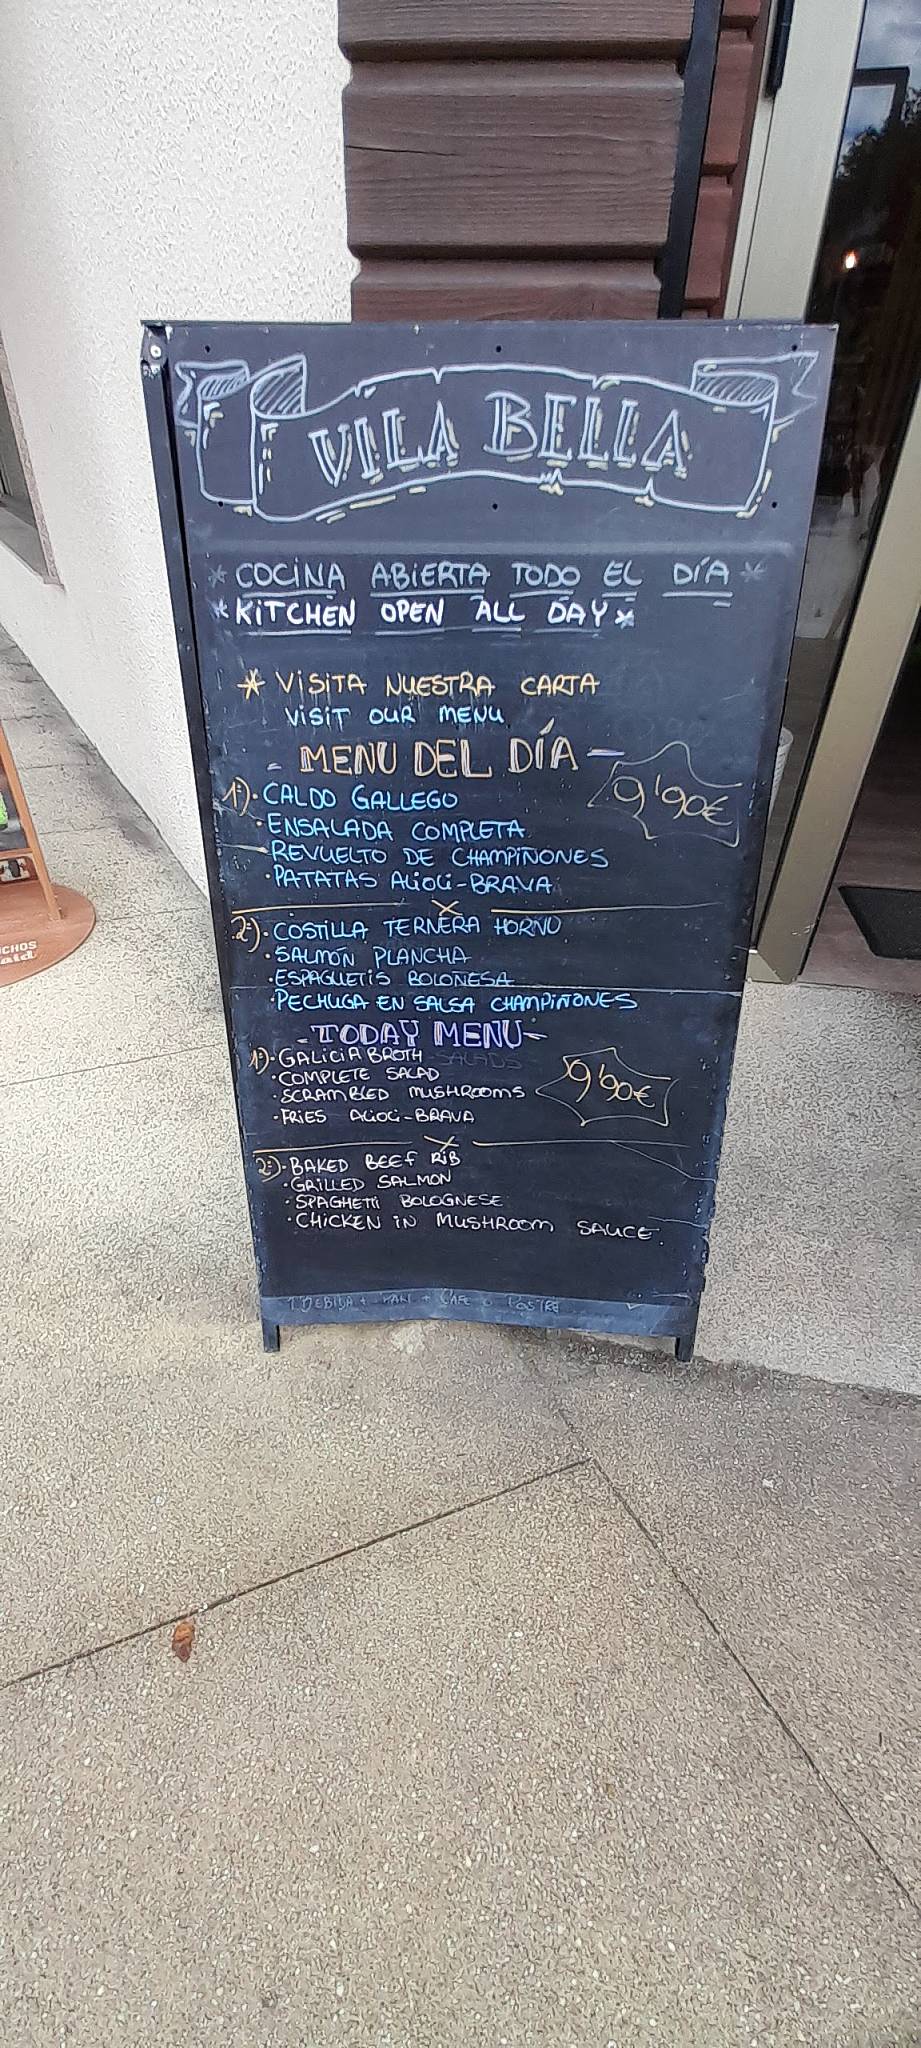 VILA BELLA
* COCINA ABIERTA TODO EL DÍA *
* KITCHEN OPEN ALL DAY *
* VISITA NUESTRA CARTA
VISIT OUR MENU
- MENU DEL DÍA -
9'90€
1º) · CALDO GALLEGO
· ENSALADA COMPLETA
· REVUELTO DE CHAMPIÑONES
· PATATAS ALIOLI-BRAVA
2º) · COSTILLA TERNERA HORNO
· SALMÓN PLANCHA
· ESPAGUETIS BOLOÑESA
· PECHUGA EN SALSA CHAMPIÑONES
- TODAY MENU -
1º) · GALICIA BROTH SALADS
· COMPLETE SALAD
9'90€
· SCRAMBLED MUSHROOMS
· FRIES ALIOLI-BRAVA
2º) · BAKED BEEF RIB
· GRILLED SALMON
· SPAGHETTI BOLOGNESE
· CHICKEN IN MUSHROOM SAUCE.
1 BEBIDA + PAN + CAFE O POSTRE